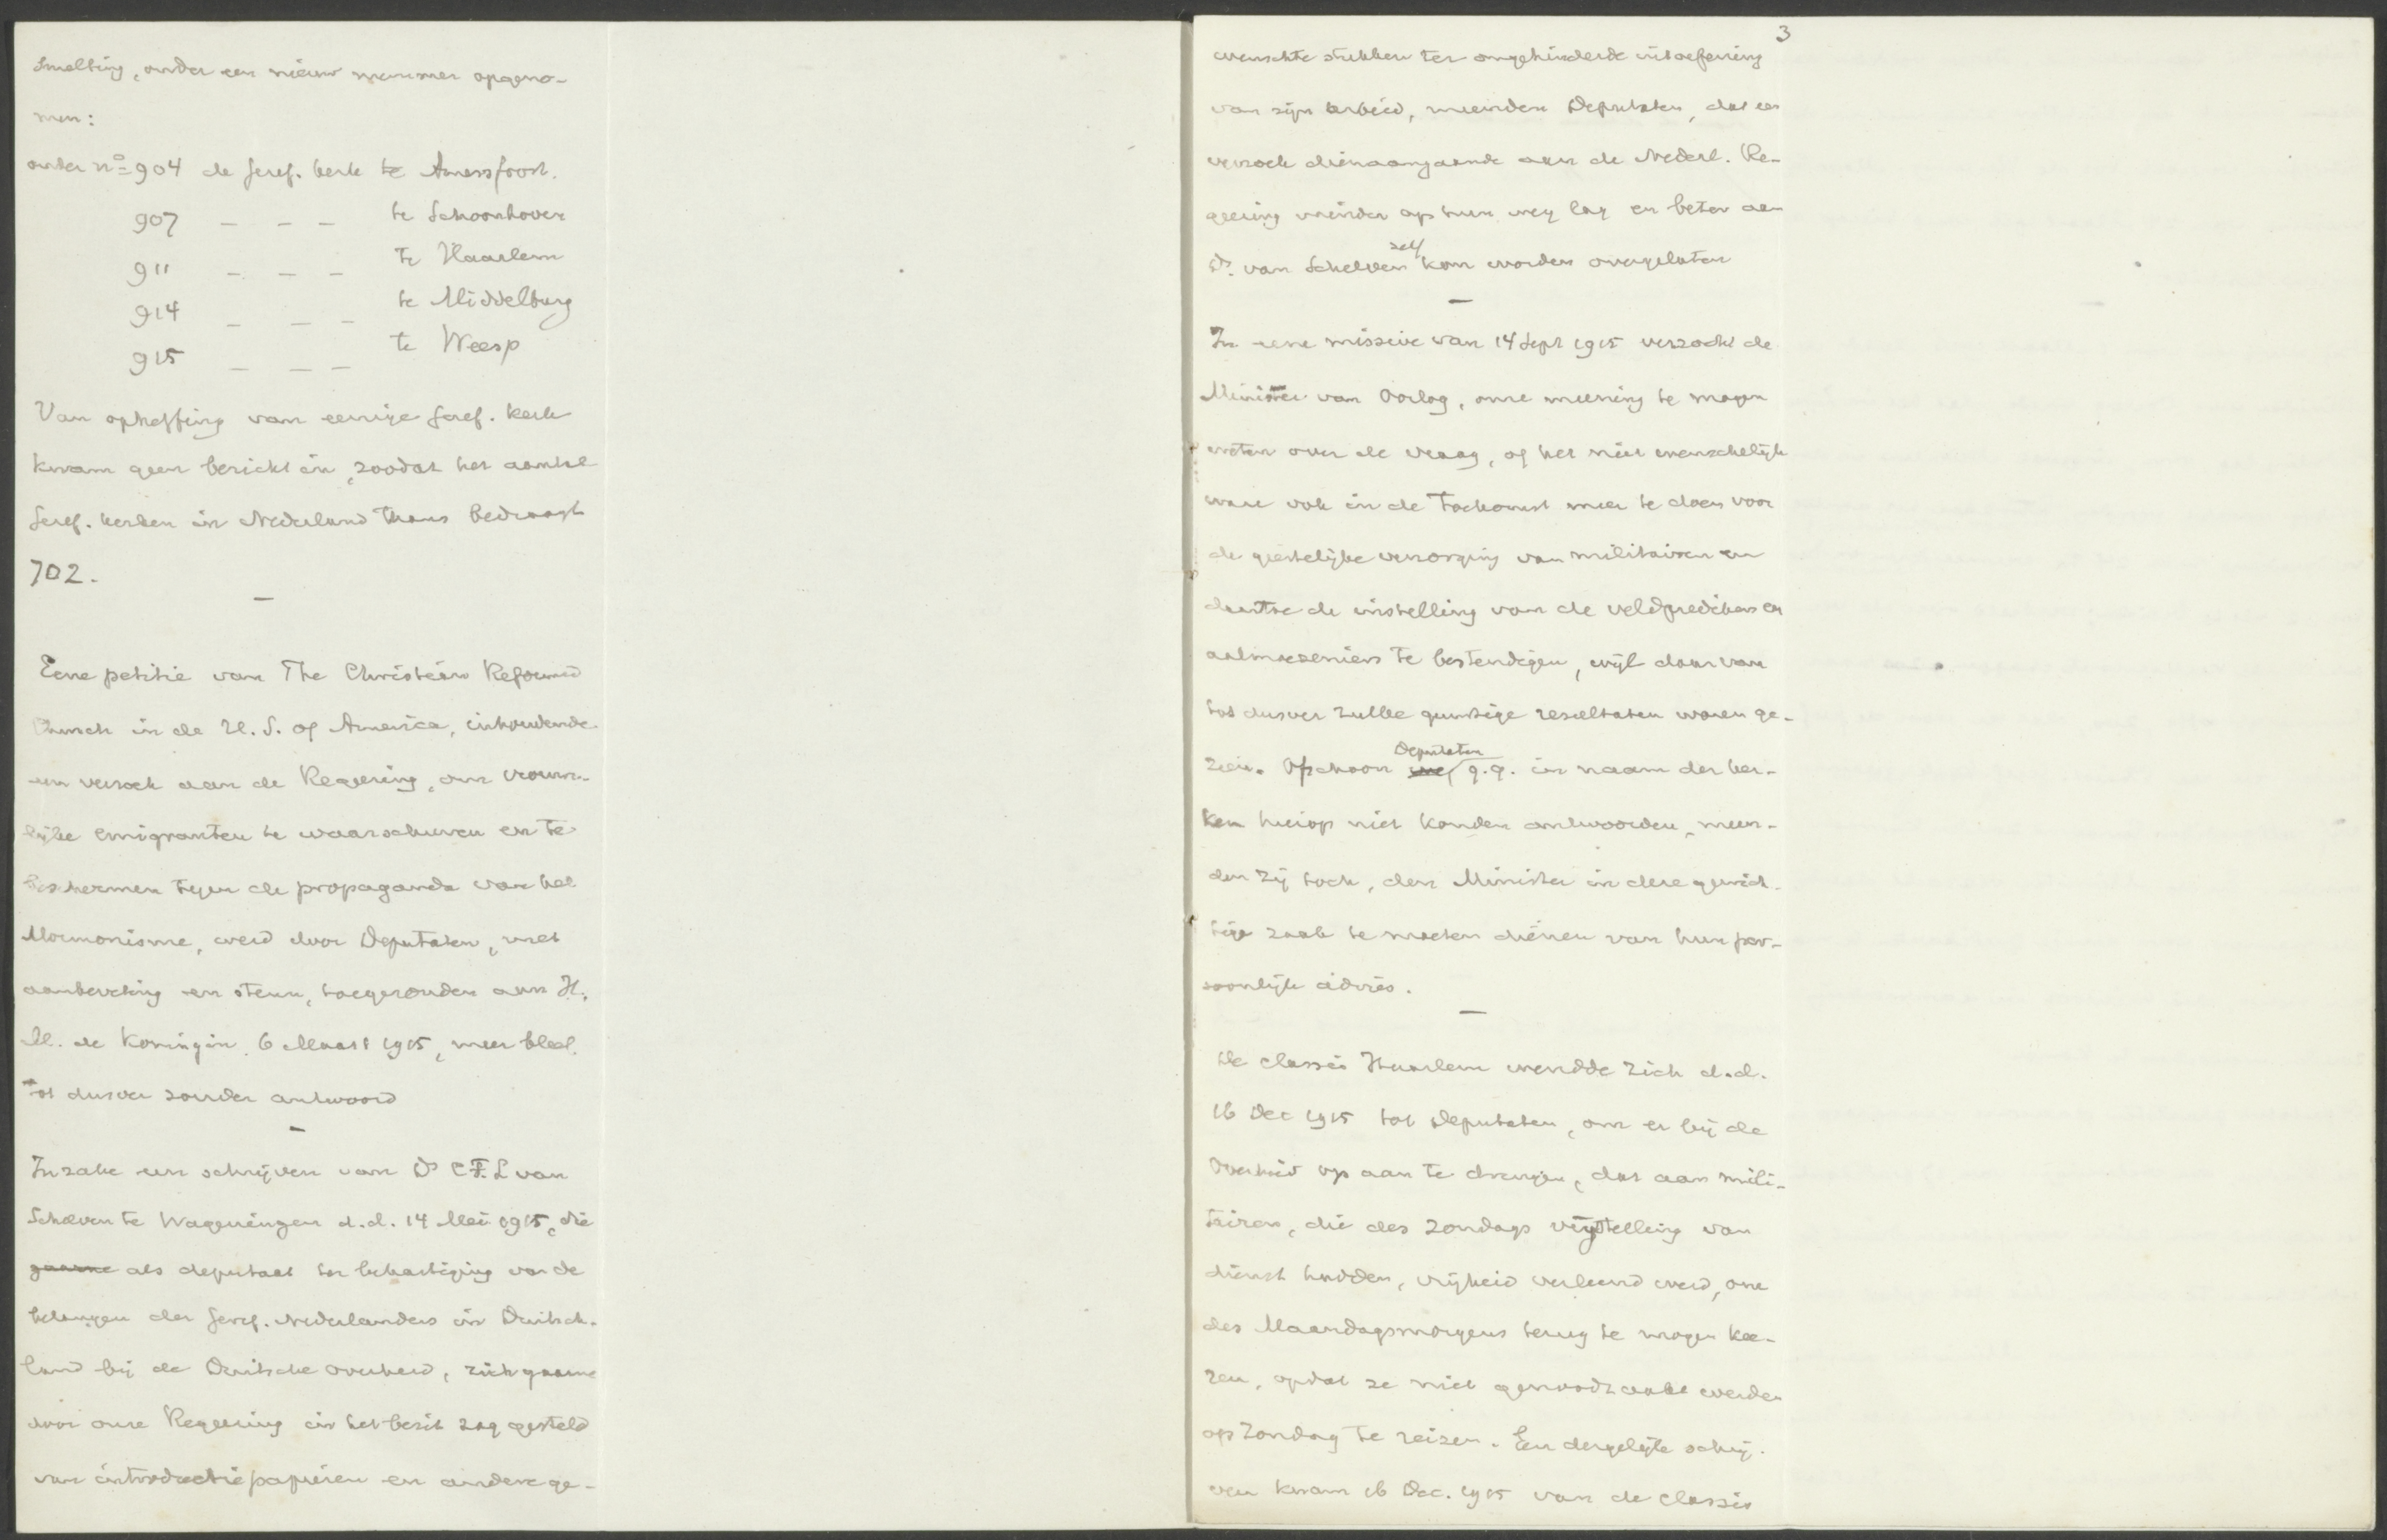 smelting, onder een nieuw nummer opgeno-
men:
onder nº 904 de Geref. kerk te Amersfoort.
907 — — — te Schoonhoven
911 — — — te Haarlem
914 — — — te Middelburg
915 — — — te Weesp
Van opheffing van eenige Geref. Kerk
kwam geen bericht in, zoodat het aantal
Geref. kerken in Nederland thans bedraagt
702.
—
Eene petitie van The Christian Reformed
Church in de U. S. of America, inhoudende
een verzoek aan de Regeering, om vrouwe-
lijke emigranten te waarschuwen en te
beschermen tegen de propaganda van het
Mormonisme, werd door Deputaten, met
aanbeveling en steun, toegezonden aan H.
M. de Koningin, 6 Maart 1915, maar bleef
tot dusver zonder antwoord
—
Inzake een schrijven van Ds C.F.L van
Schelven te Wageningen d.d. 14 Mei 1915, die
gaarne als deputaat ter behartiging van de
belangen der Geref. Nederlanders in Duitsch-
land bij de Duitsche overheid, zich gaarne
door onze Regeering in het bezit zag gesteld
van introductiepapieren en andere ge-
3
wenschte stukken ter ongehinderde uitoefening
van zijn arbeid, meenden Deputaten, dat een
verzoek dienaangaande aan de Nederl. Re-
geering minder op hun weg lag en beter aan
Ds. van Schelven zelf kon worden overgelaten
—
In eene missive van 14 Sept 1915 verzocht de
Minister van Oorlog, onze meening te mogen
weten over de vraag, of het niet wenschelijk
ware ook in de toekomst meer te doen voor
de geestelijke verzorging van militairen en
daartoe de instelling van de veldpredikers en
aalmoezeniers te bestendigen, wijl daarvan
tot dusver zulke gunstige resultaten waren ge-
zien. Ofschoon wij Deputaten q.q. in naam der ker-
ken hierop niet konden antwoorden, meen-
den zij toch, den Minister in deze gewich-
tige zaak te moeten dienen van hun per-
soonlijk advies.
—
De classis Haarlem wendde zich d.d.
16 Dec 1915 tot Deputaten, om er bij de
Overheid op aan te dringen, dat aan mili-
tairen, die des Zondags vrijstelling van
dienst hadden, vrijheid verleend werd, om
des Maandagsmorgens terug te mogen kee-
ren, opdat ze niet genoodzaakt werden
op Zondag te reizen. Een dergelijk schrij-
ven kwam 16 Dec. 1915 van de classis